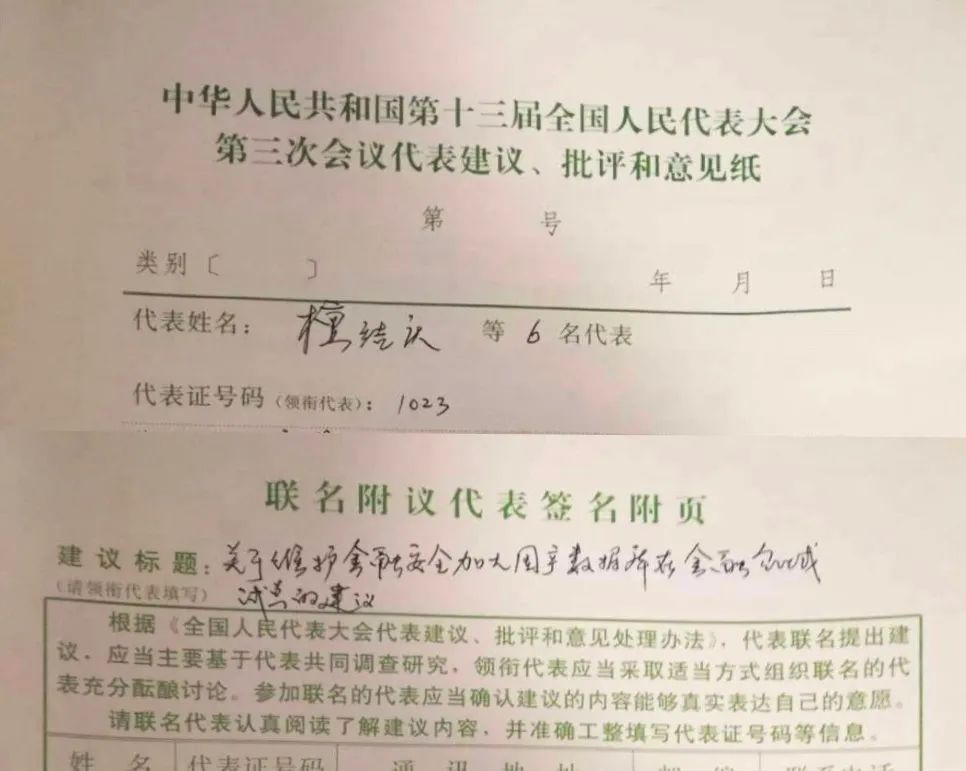 中华人民共和国第十三届全国人民代表大会
第三次会议代表建议、批评和意见纸
第 号
类别〔 〕 年 月 日
代表姓名：檀结庆 等 6 名代表
代表证号码（领衔代表）：1023
联名附议代表签名附页
建议标题：关于维护金融安全加大国产数据库在金融领域
（请领衔代表填写） 试点的建议
根据《全国人民代表大会代表建议、批评和意见处理办法》，代表联名提出建
议，应当主要基于代表共同调查研究，领衔代表应当采取适当方式组织联名的代
表充分酝酿讨论。参加联名的代表应当确认建议的内容能够真实表达自己的意愿。
请联名代表认真阅读了解建议内容，并准确工整填写代表证号码等信息。
姓 名 代表证号码 通 讯 地 址 邮 编 联系电话